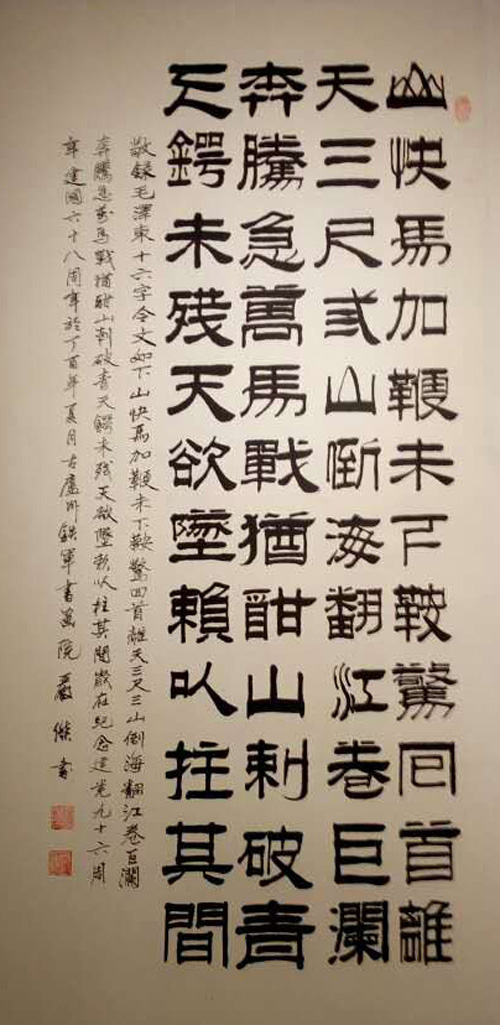 山快馬加鞭未下鞍驚回首離
天三尺弎山倒海翻江卷巨瀾
奔騰急萬馬戰猶酣山刺破青
天鍔未殘天欲墜賴以拄其間
敬録毛澤東十六字令文如下山快馬加鞭未下鞍驚回首離天三尺三山倒海翻江卷巨瀾
奔騰急萬馬戰猶酣山刺破青天鍔未殘天欲墜賴以拄其間歲在紀念建党九十六周
年建國六十八周年於丁酉年夏月古廬州鉄軍書畫院嚴傑書